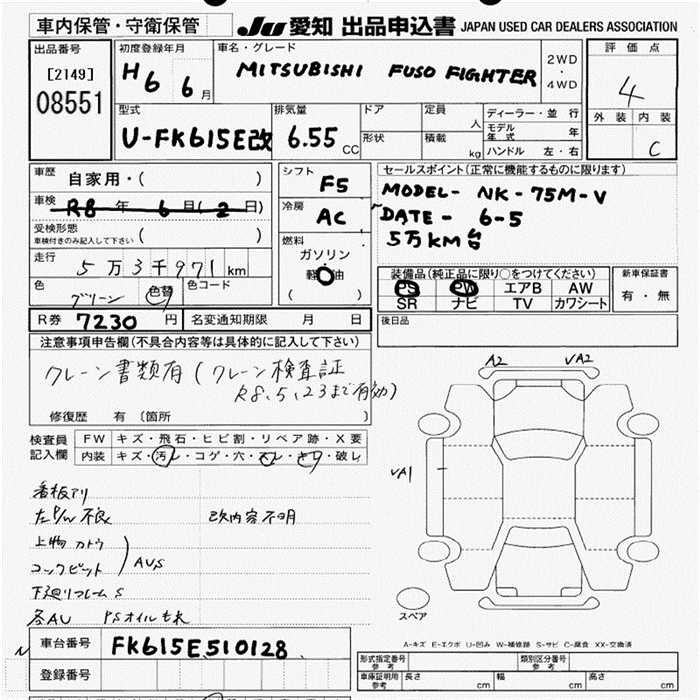 車内保管・守衛保管
JU 愛知 出品申込書 JAPAN USED CAR DEALERS ASSOCIATION
出品番号
[2149]
08551
初度登録年月
H6 6月
車名・グレード
MITSUBISHI FUSO FIGHTER
2WD
・
4WD
評価点
4
外装 内装
C
型式
U-FK615E改
排気量
6.55 CC
ドア
形状
定員 人
積載 kg
ディーラー・並行
モデル年式 年
ハンドル 左・右
車歴 自家用・( )
車検 R8年 6月(2日)
受検形態
車検付きのみ記入して下さい ( )
走行
5万3千971km
色 グリーン 色替
色コード
シフト
F5
冷房
AC
燃料
ガソリン
軽油
( )
セールスポイント(正常に機能するものに限ります)
MODEL- NK-75M-V
DATE- 6-5
5万km台
装備品(純正品に限り○をつけてください)
PS PW エアB AW
SR ナビ TV カワシート
新車保証書
有・無
R券 7230円
名変通知期限 月 日
後日品
注意事項申告欄(不具合内容等は具体的に記入して下さい)
クレーン書類有(クレーン検査証
R8.5.23まで有効)
修復歴 有(箇所 )
検査員
記入欄
FW キズ・飛石・ヒビ割・リペア跡・X要
内装 キズ・汚レ・コゲ・穴・スレ・キレ・破レ
看板アリ
左P/W不良 改内容不明
上物カトウ
コックピット
AUS
下廻りフレームS
各AU PSオイルもれ
A2 VA2
VA1
スペア
A-キズ E-エクボ U-凹み W-補修跡 S-サビ C-腐食 XX-交換済
車台番号 FK615E510128
登録番号
型式指定番号
参考
類別区分番号
参考
車庫証明用
参考
長さ cm 幅 cm 高さ cm